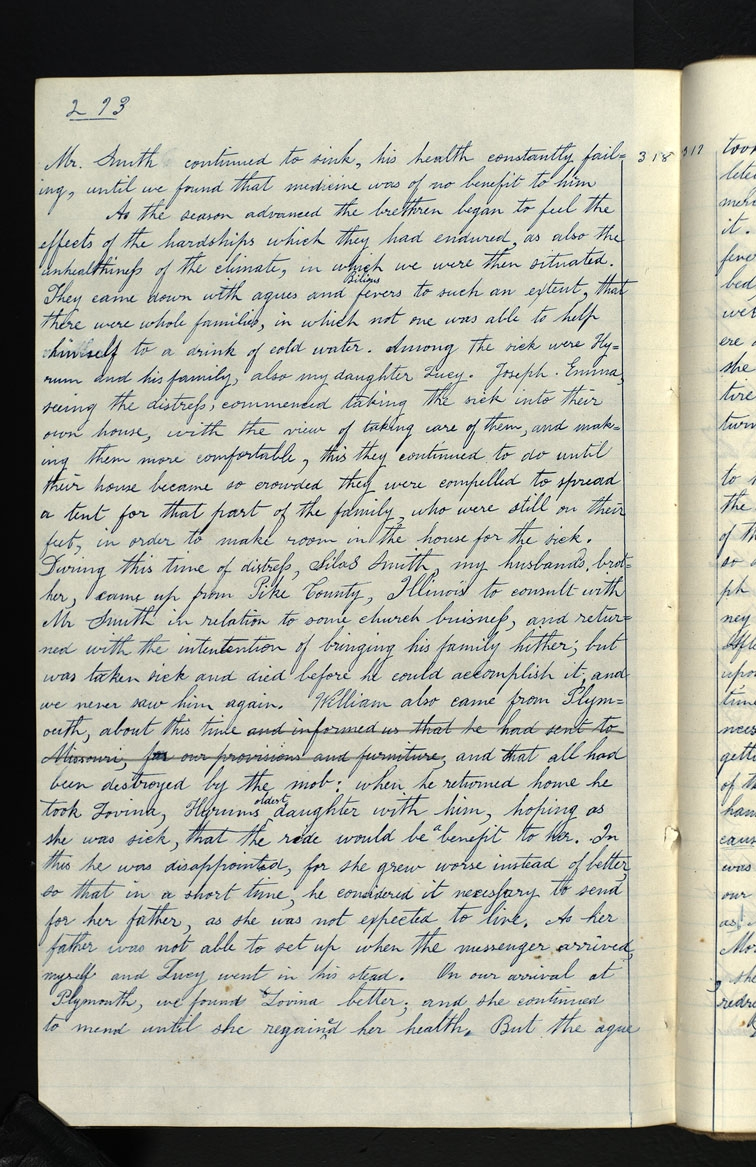 293
Mr. Smith continued to sink, his health constantly fail= 318 317
ing, until we found that medicine was of no benefit to him
As the season advanced the brethren began to feel the
effects of the hardships which they had endured, as also the
unhealthiness of the climate, in which we were then situated.
Bilious
They came down with agues and fevers to such an extent, that
there were whole families, in which not one was able to help
himself to a drink of cold water. Among the sick were Hy=
rum and his family, also my daughter Lucy. Joseph. Emma,
seeing the distress, commenced taking the sick into their
own house, with the view of taking care of them, and mak=
ing them more comfortable, this they continued to do until
their house became so crowded they were compelled to spread
a tent for that part of the family, who were still on their
feet, in order to make room in the house for the sick.
During this time of distress, Silas Smith, my husband's brot=
her, came up from Pike County, Illinois to consult with
Mr Smith in relation to some church buisness, and retur=
ned with the intentention of bringing his family hither; but
was taken sick and died before he could accomplish it, and
we never saw him again. William also came from Plym=
outh, about this time and informed us that he had sent to
Missouri, for our provisions and furniture, and that all had
been destroyed by the mob: when he returned home he
oldest
took Lovina, Hyrums daughter with him, hoping as
she was sick, that the ride would be a benefit to her. In
this he was disappointed, for she grew worse instead of better,
so that in a short time, he considered it necessary to send
for her father, as she was not expected to live. As her
father was not able to set up when the messenger arrived,
myself and Lucy went in his stead. On our arrival at
Plymouth, we found Lovina better; and she continued
to mend until she regained her health. But the ague